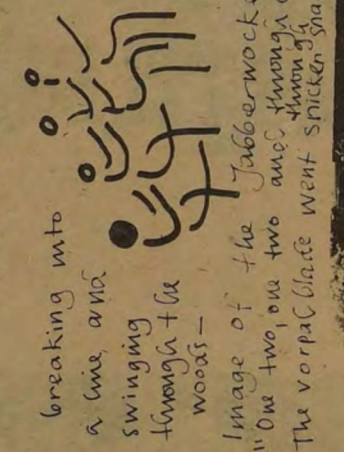 breaking into
a line, and
swinging
through the
woods—
Image of the Jabberwocke
"One two, one two and through
through
The vorpal blade went snicker sna